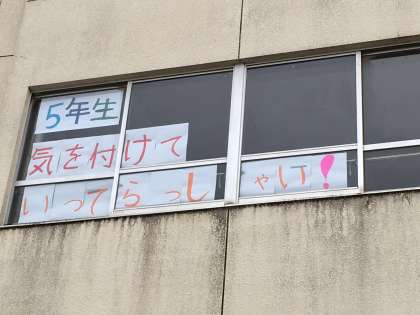 5年生
気を付けて
いってらっしゃけ!